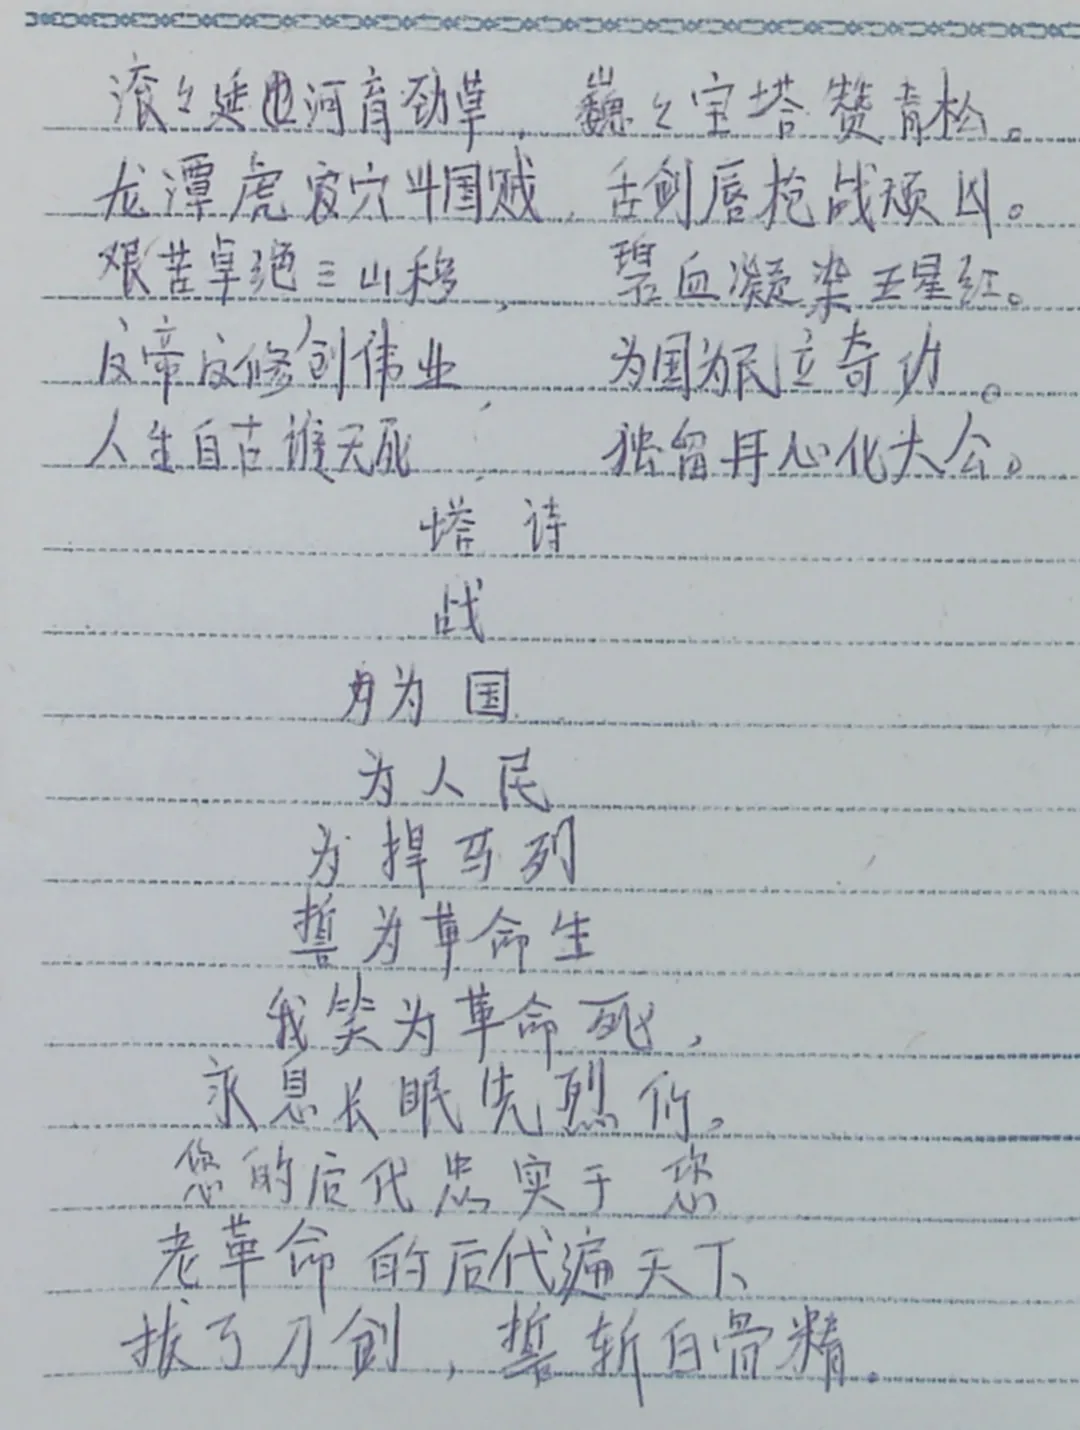 滚々延河育劲草，巍々宝塔赞青松。
龙潭虎穴斗国贼，舌剑唇枪战顽凶。
艰苦卓绝三山移，碧血凝染五星红。
反帝反修创伟业，为国为民立奇功。
人生自古谁无死，独留丹心化大公。
塔诗
战
为国
为人民
为捍马列
誓为革命生
我笑为革命死，
永息长眠先烈们。
您的后代忠实于您
老革命的后代遍天下、
拔弓刀剑，誓斩白骨精.